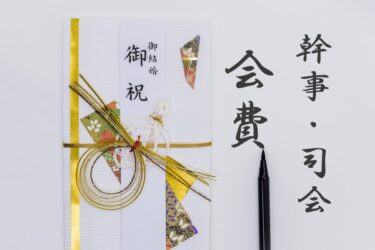 幹事・司会
会費
御結婚
御祝